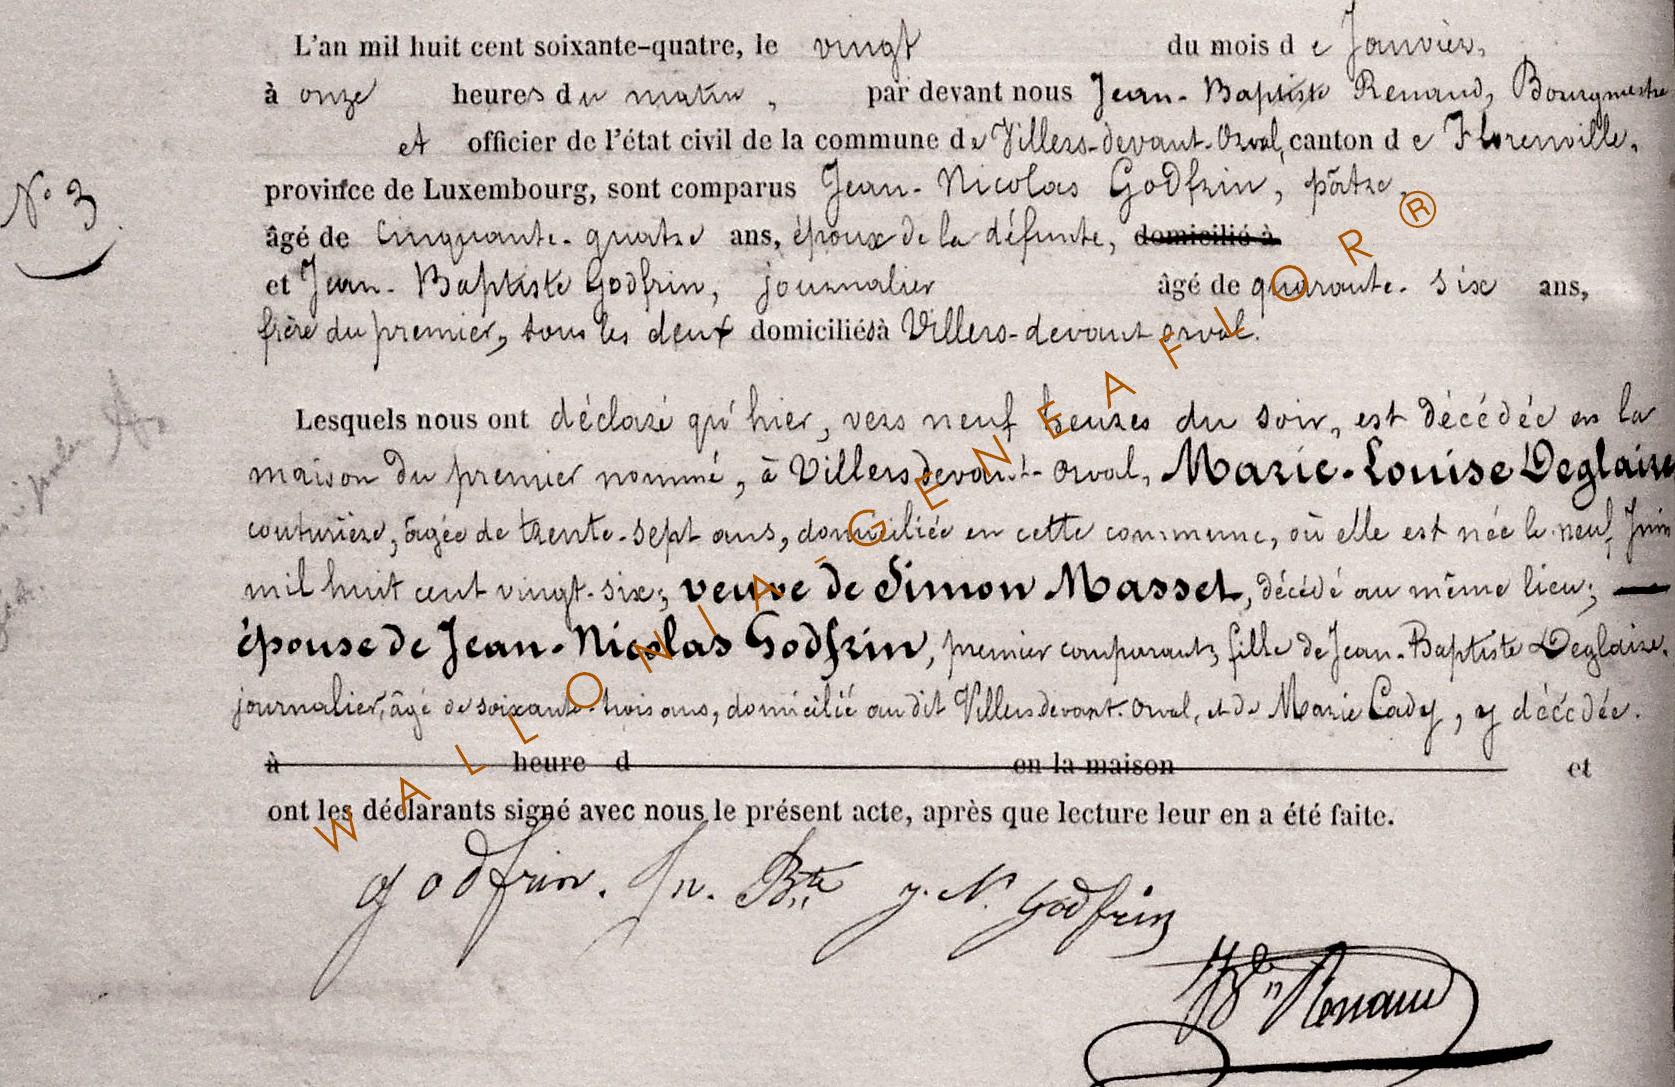 L'an mil huit cent soixante-quatre, le vingt du mois de Janvier,
à onze heures du matin, par devant nous Jean-Baptiste Renaud, Bourgmestre
et officier de l'état civil de la commune de Villers-devant-Orval, canton de Florenville,
province de Luxembourg, sont comparus Jean-Nicolas Godfrin, pâtre,
N° 3
âgé de cinquante-quatre ans, époux de la défunte, domicilié à
et Jean-Baptiste Godfrin, journalier âgé de quarante-six ans,
frère du premier, tous les deux domiciliés à Villers-devant orval.
Lesquels nous ont déclaré qu'hier, vers neuf heures du soir, est décédée en la
maison du premier nommé, à Villers devant-Orval, Marie-Louise Deglaire
couturière, âgée de trente-sept ans, domiciliée en cette commune, où elle est née le neuf Juin
mil huit cent vingt-six; veuve de Simon Masset, décédé au même lieu;
épouse de Jean-Nicolas Godfrin, premier comparant; fille de Jean-Baptiste Deglaire,
journalier, âgé de soixante-trois ans, domicilié au dit Villers devant-Orval, et de Marie Cady, y décédée.
à heure d en la maison et
ont les déclarants signé avec nous le présent acte, après que lecture leur en a été faite.
godfrin. Jn. Bte J. N. Godfrin
Renaud
WALLONIA-GENEAFLOR®